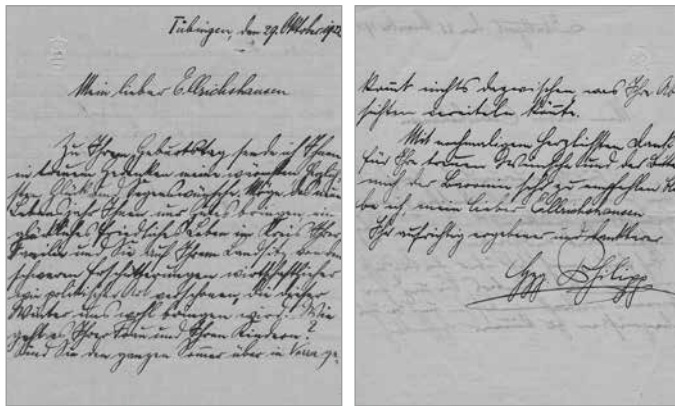 Tübingen, den 29. Oktober 1922
Mein lieber Ellrichshausen
Zu Ihrem Geburtstag sende ich Ihnen
in treuem Gedenken meine wärmsten Glück
und Segenswünsche. Möge das neue
Lebensjahr Ihnen nur gutes bringen, ein
glückliches friedliches Leben im Kreis Ihrer
Familie und Sie auf Ihrem Landsitz von den
schweren Erschütterungen wirthschaftlicher
wie politischer Art verschonen, die dieser
Winter uns wohl bringen wird. Wie
geht es Ihrer Frau und Ihren Kindern?
Sind Sie den ganzen Sommer über in
kommt nichts dazwischen, was Ihre Ab
sichten vereiteln könnte.
Mit nochmaligem herzlichsten Dank
für Ihre treuen Wünsche und der Bitte
mich der Baronin sehr zu empfehlen blei
be ich, mein lieber Ellrichshausen
Ihr aufrichtig ergebener und dankbarer
Hzg Philipp